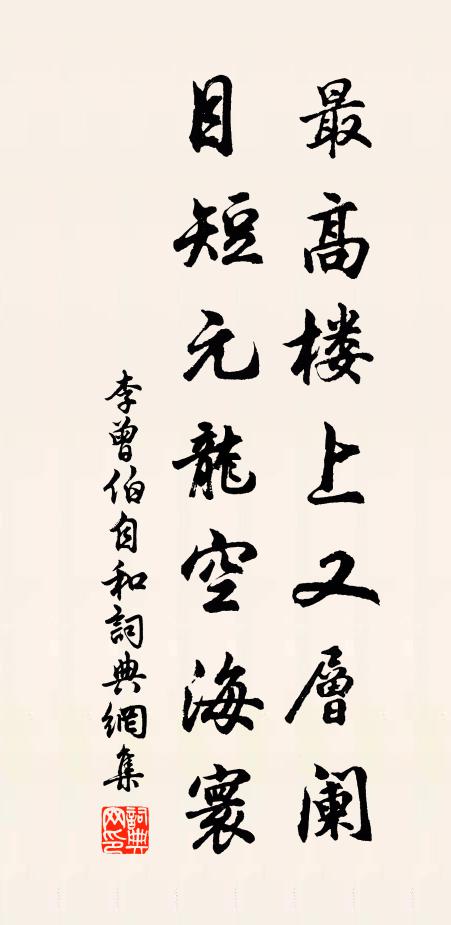 最高楼上又層阑
目短元龍空海寰
李曾伯自和詞典網集
詞典
网印